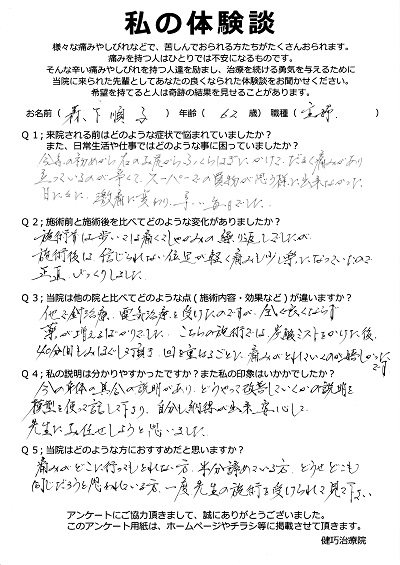 私の体験談
様々な痛みやしびれなどで、苦しんでおられる方たちがたくさんおられます。
痛みを持つ人はひとりでは不安になるものです。
そんな辛い痛みやしびれを持つ人達を励まし、治療を続ける勇気を与えるために
当院に来られた先輩としてあなたの良くなられた体験談をお聞かせください。
希望を持てると人は奇跡の結果を見せることがあります。
お名前（ 森下順子 ） 年齢（ 62 歳） 職種（ 主婦 ）
Q1；来院される前はどのような症状で悩まれていましたか？
また、日常生活や仕事ではどのような事に困っていましたか？
今年の初めから右のお尻からふくらはぎにかけて、だるく痛みがあり
立っているのが辛くて、スーパーでの買物が思う様に出来なかった。
日に日に、激痛に変わり、辛い毎日でした。
Q2；施術前と施術後を比べてどのような変化がありましたか？
施術前は歩いては痛くてしゃがみの繰り返しでしたが、
施術後は、信じられない位足が軽く痛みも少し楽になっていたので
正直、びっくりしました。
Q3；当院は他の院と比べてどのような点（施術内容・効果など）が違いますか？
他で針治療、電気治療を受けたのですが、全く良くならず
薬が増えるばかりでした。こちらの施術では、炭酸ミストをかけた後、
40分間もみほぐして頂き、回を重ねるごとに、痛みがとれていくのが嬉しかった
です
Q4；私の説明は分かりやすかったですか？また私の印象はいかがでしたか？
今の身体の具合の説明があり、どうやって改善していくかの説明を
模型を使って話して下さり、自分も納得が出来、安心して
先生にお任せしようと思いました。
Q5；当院はどのような方におすすめだと思いますか？
痛みがどこに行ってもとれない方、半分諦めている方、どうせどこも
同じだろうと思われている方、一度先生の施術を受けられて見て下さい
アンケートにご協力頂きまして、誠にありがとうございました。
このアンケート用紙は、ホームページやチラシ等に掲載させて頂きます。
健巧治療院